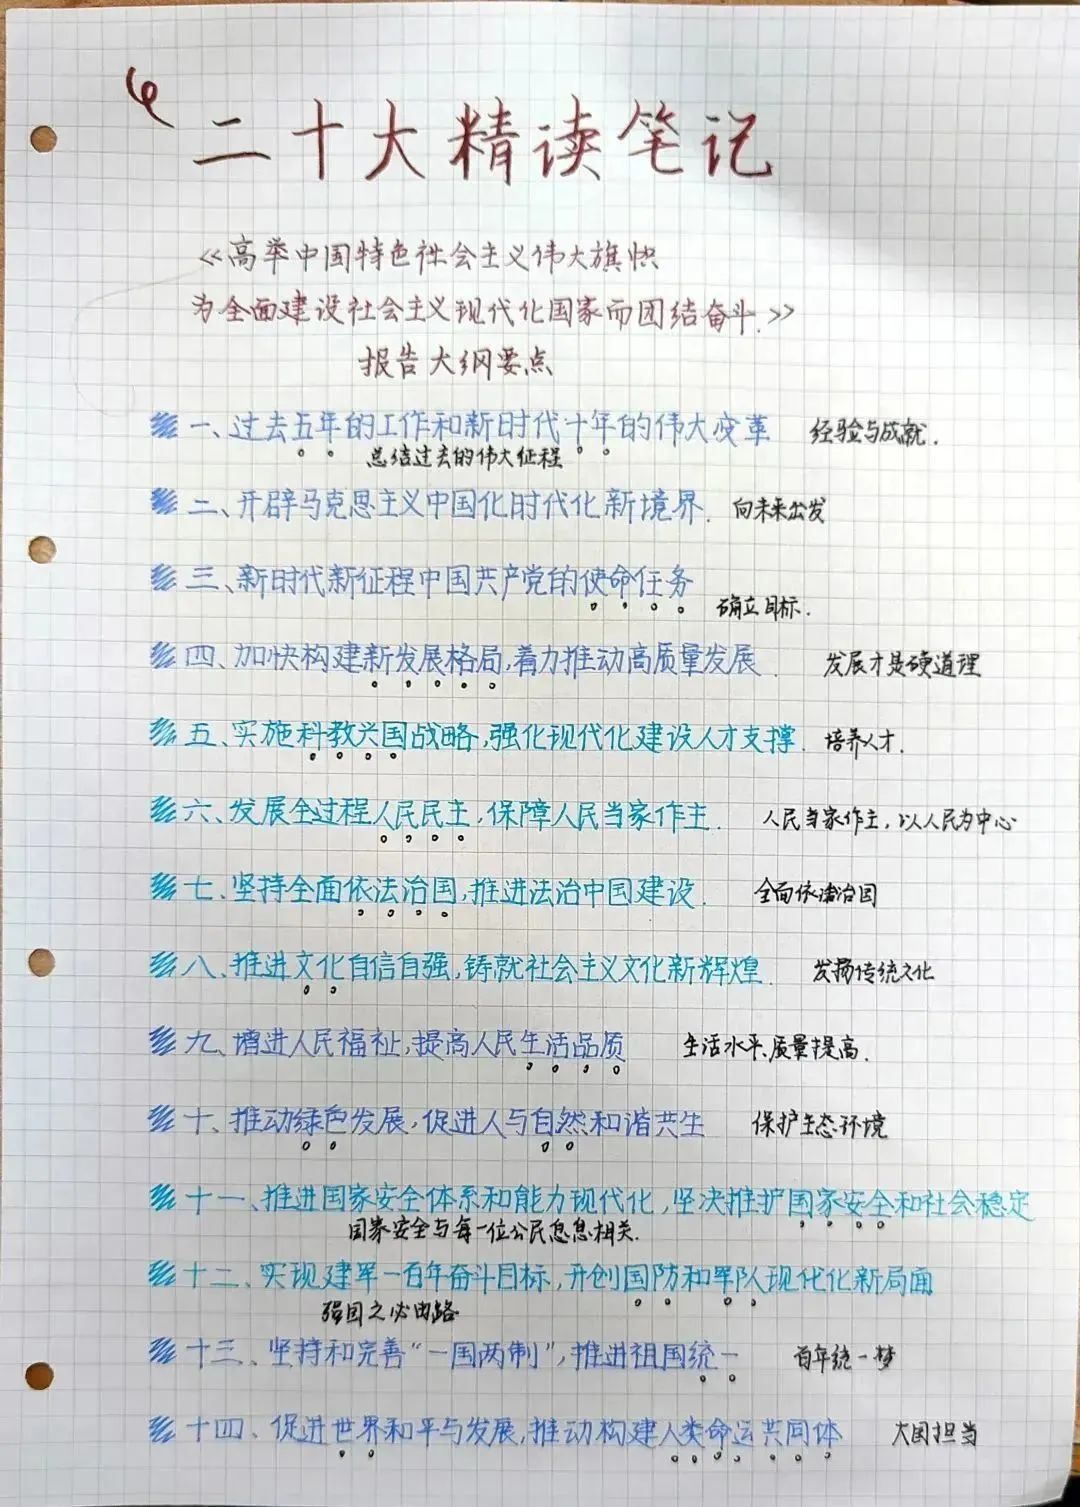 二十大精读笔记
《高举中国特色社会主义伟大旗帜
为全面建设社会主义现代化国家而团结奋斗.》
报告大纲要点
一、过去五年的工作和新时代十年的伟大变革 经验与成就.
总结过去的伟大征程
二、开辟马克思主义中国化时代化新境界. 向未来出发
三、新时代新征程中国共产党的使命任务
确立目标.
四、加快构建新发展格局,着力推动高质量发展. 发展才是硬道理
五、实施科教兴国战略,强化现代化建设人才支撑. 培养人才.
六、发展全过程人民民主,保障人民当家作主. 人民当家作主,以人民为中心
七、坚持全面依法治国,推进法治中国建设. 全面依法治国
八、推进文化自信自强,铸就社会主义文化新辉煌. 发扬传统文化
九、增进人民福祉,提高人民生活品质 生活水平、质量提高.
十、推动绿色发展,促进人与自然和谐共生 保护生态环境
十一、推进国家安全体系和能力现代化,坚决维护国家安全和社会稳定
国家安全与每一位公民息息相关.
十二、实现建军一百年奋斗目标,开创国防和军队现代化新局面
强国之必由路
十三、坚持和完善“一国两制”,推进祖国统一 百年统一梦
十四、促进世界和平与发展,推动构建人类命运共同体 大国担当